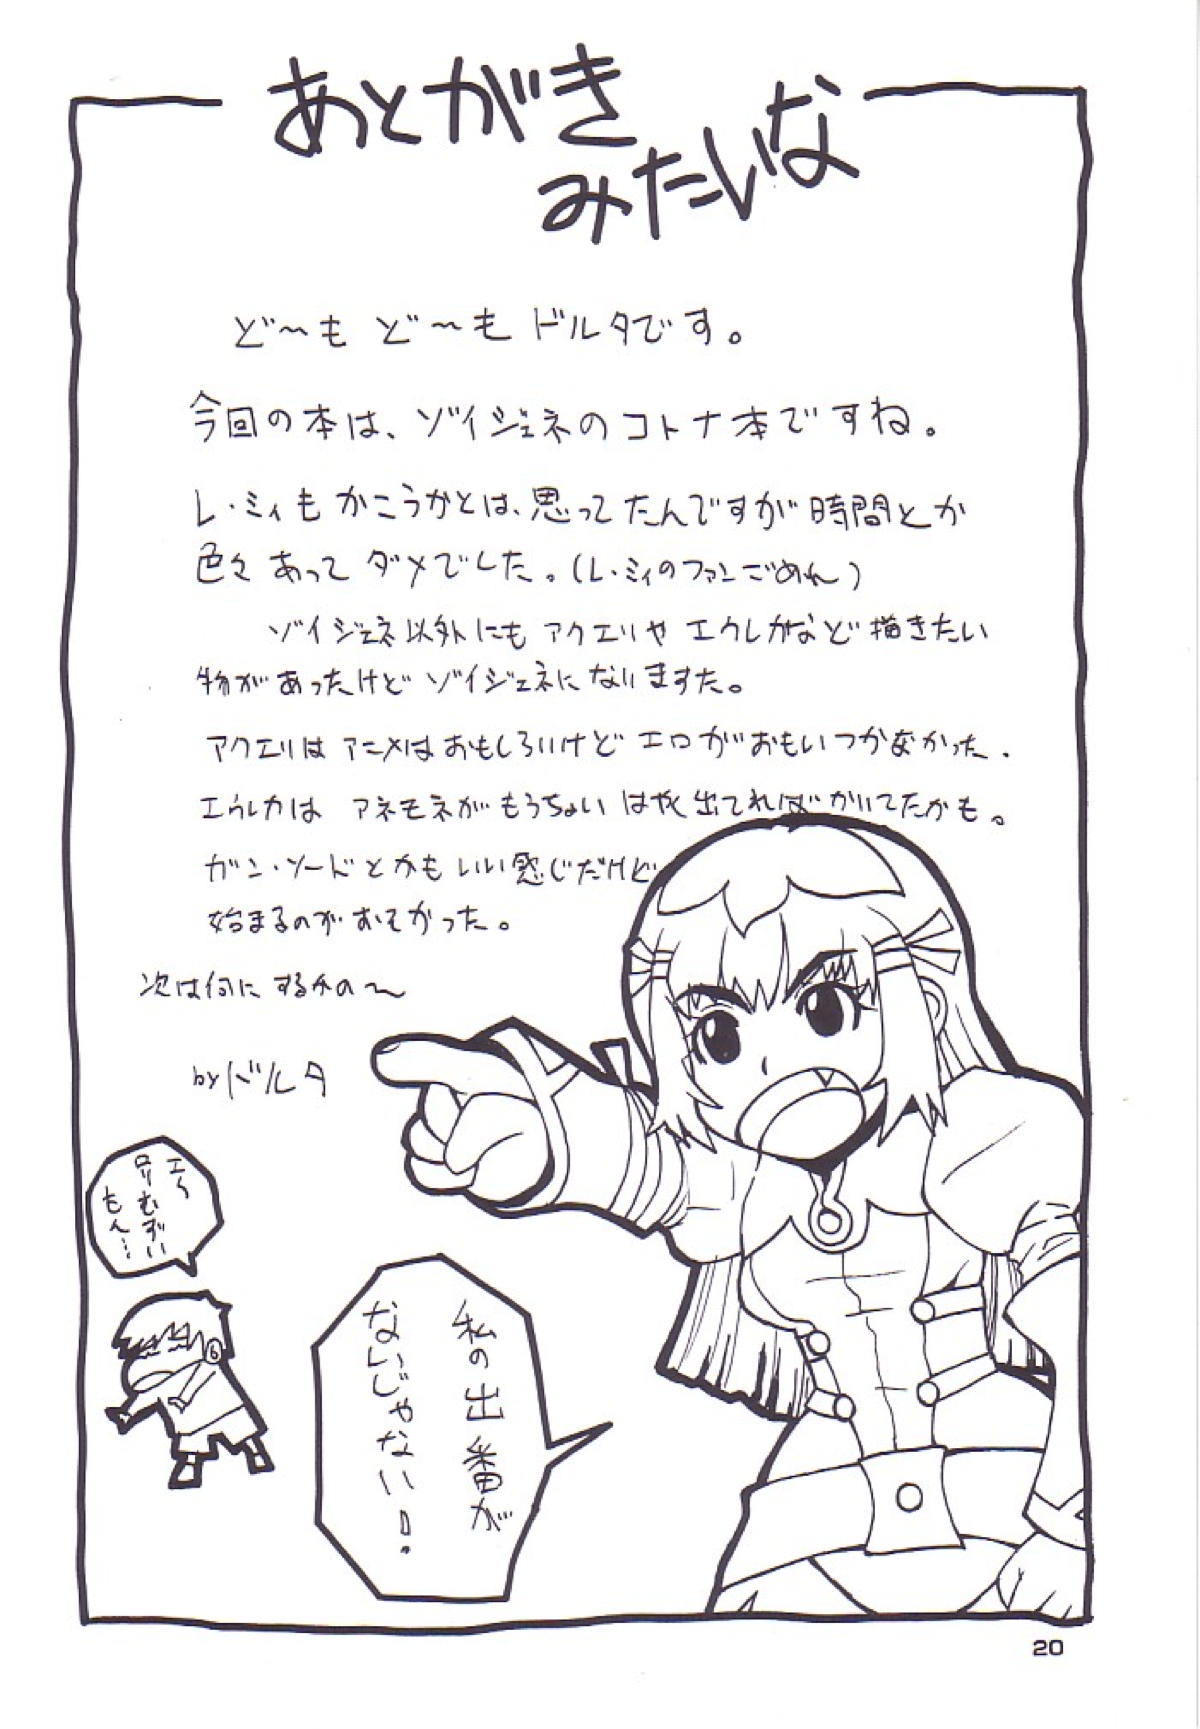 あとがき
みたいな
ど〜も ど〜も ドルタです。
今回の本は、ゾイジェネのコトナ本ですね。
レ・ミィも かこうかとは、思ってたんですが 時間とか
色々 あって ダメでした。(レ・ミィのファンごめん)
ゾイジェネ以外にも アクエリや エウレカなど 描きたい
物があったけど ゾイジェネになりますた。
アクエリは アニメはおもしろいけど エロがおもいつかなかった.
エウレカは アネモネが もうちょい はやく出てれば かいてたかも。
ガン・ソードとかも いい感じだけど
始まるのが おそかった。
次は何に するかの〜
by ドルタ
エ〜
ロリむずい
もん…
私の出番が
ないじゃない!
20